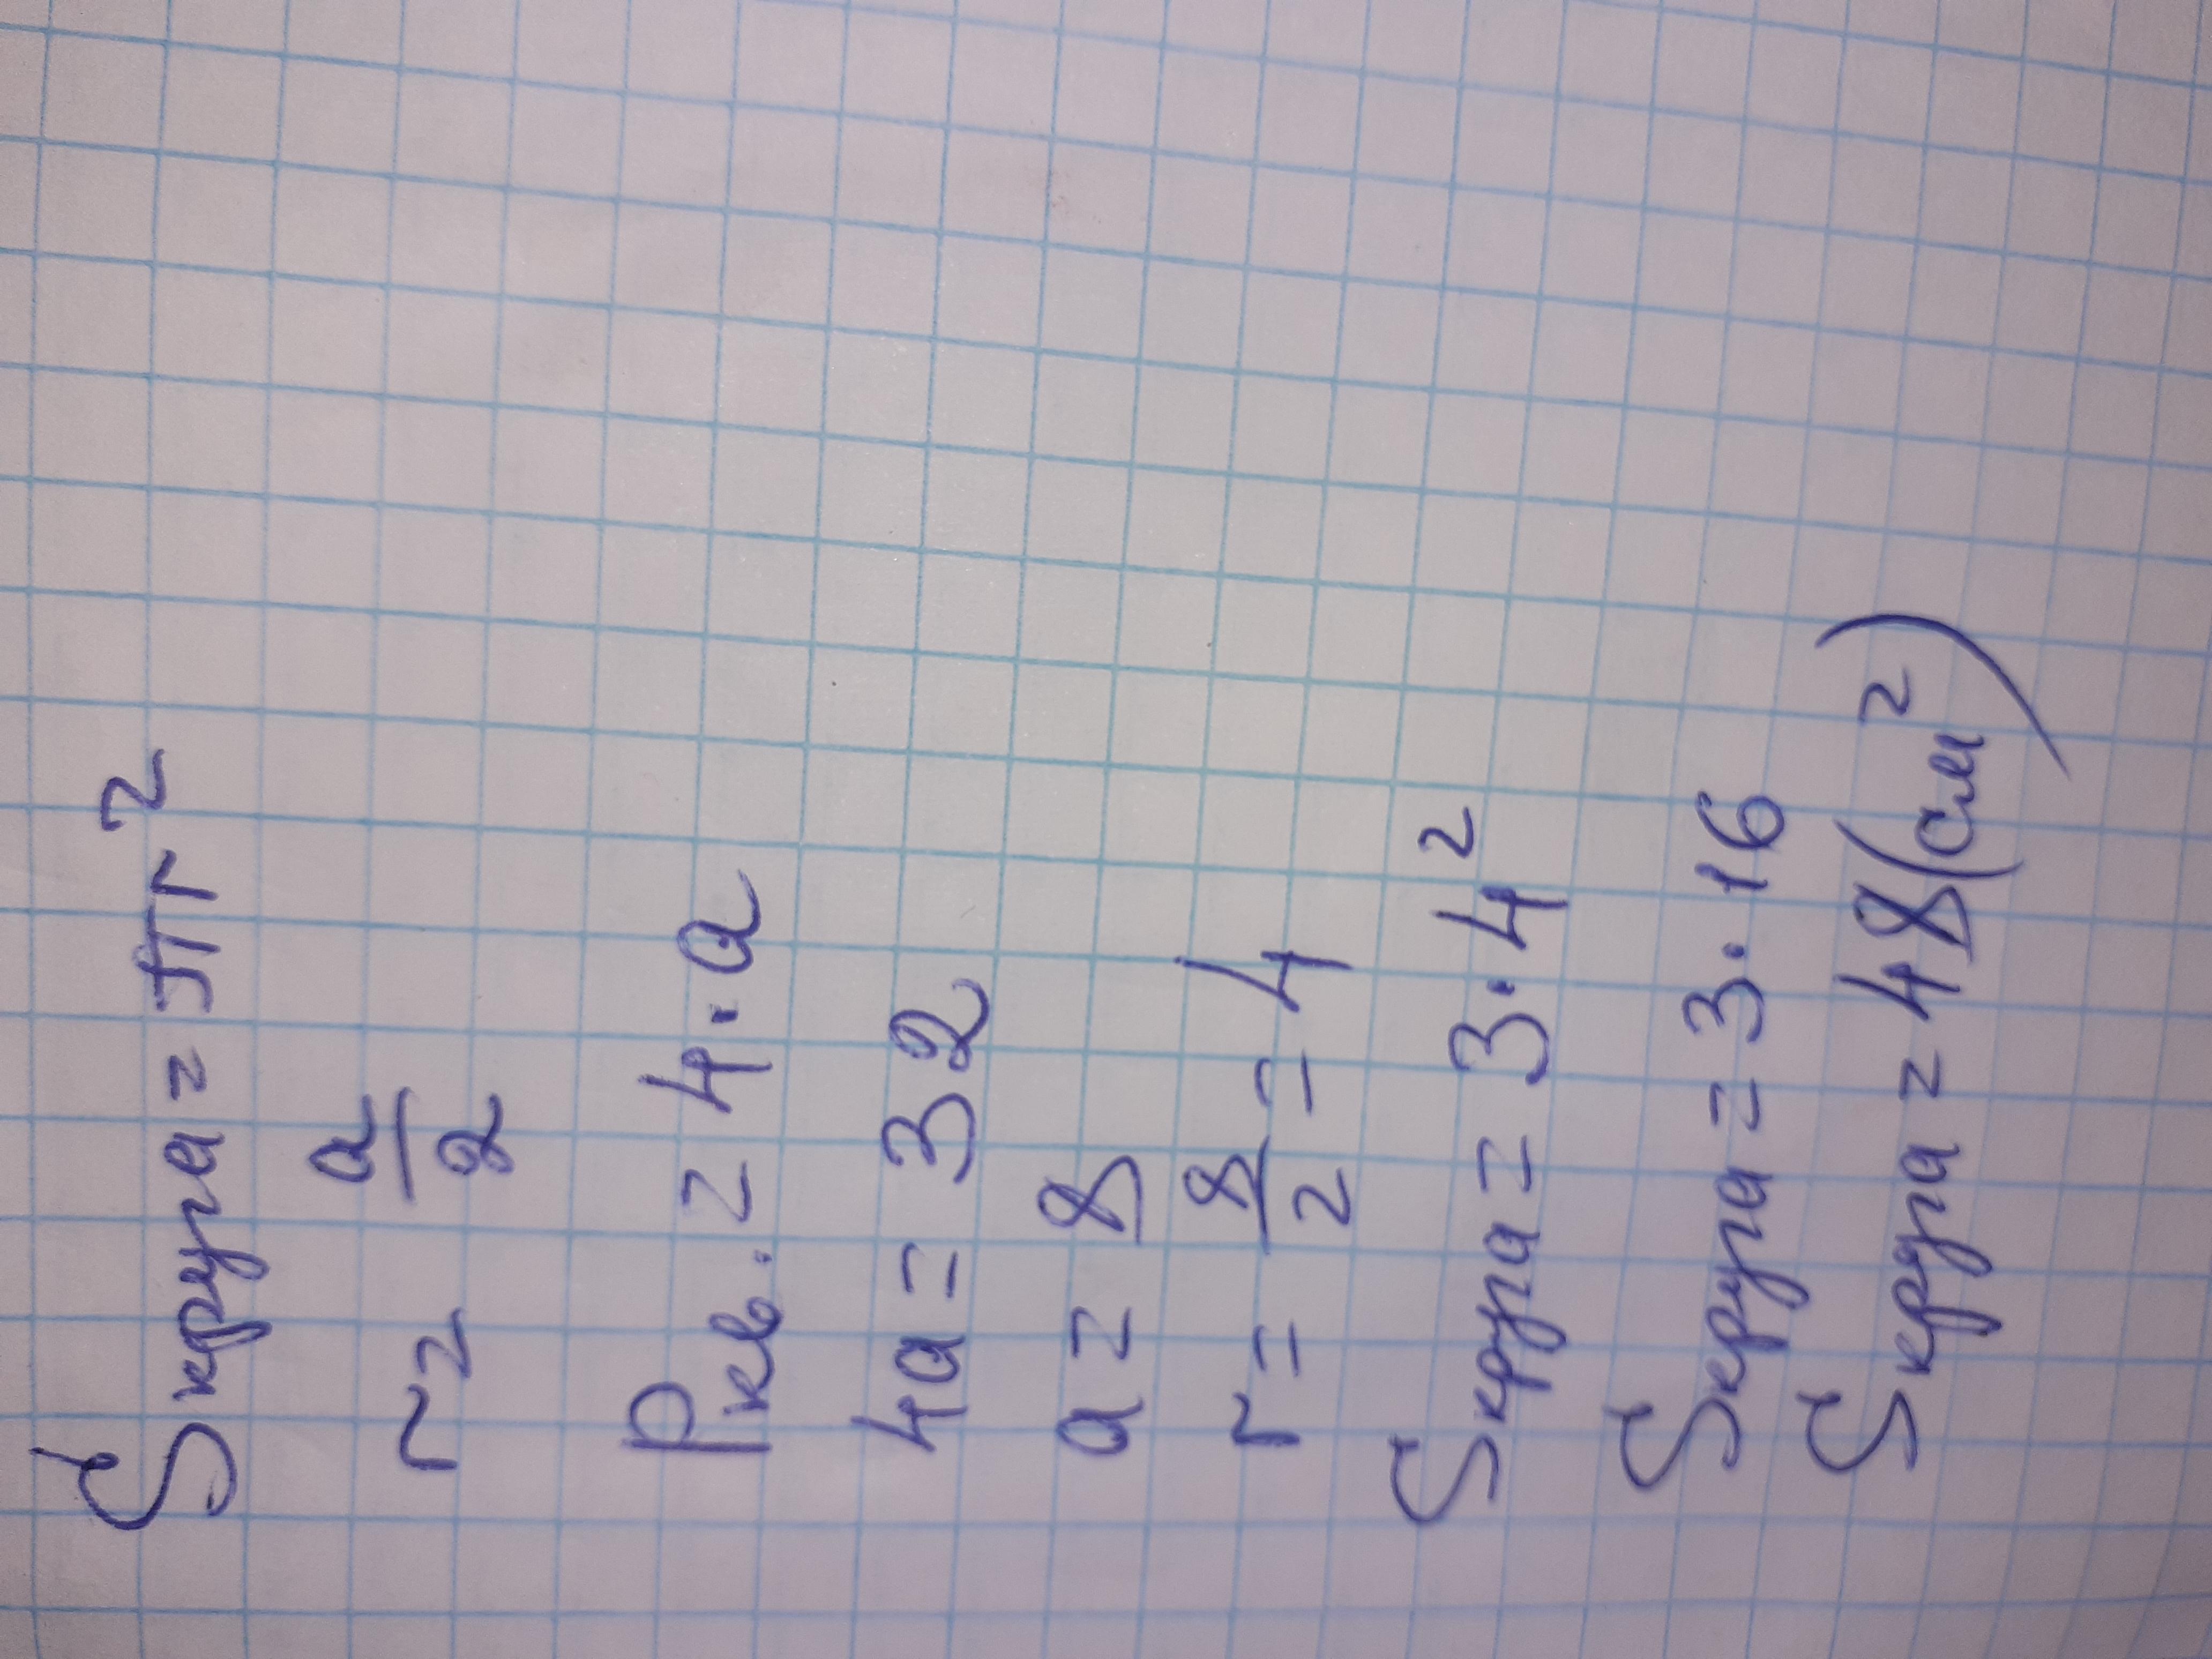 Sкруга = πr²
r = a/2
Pкв. = 4·a
4a = 32
a = 8
r = 8/2 = 4
Sкруга = 3·4²
Sкруга = 3·16
Sкруга = 48(см²)